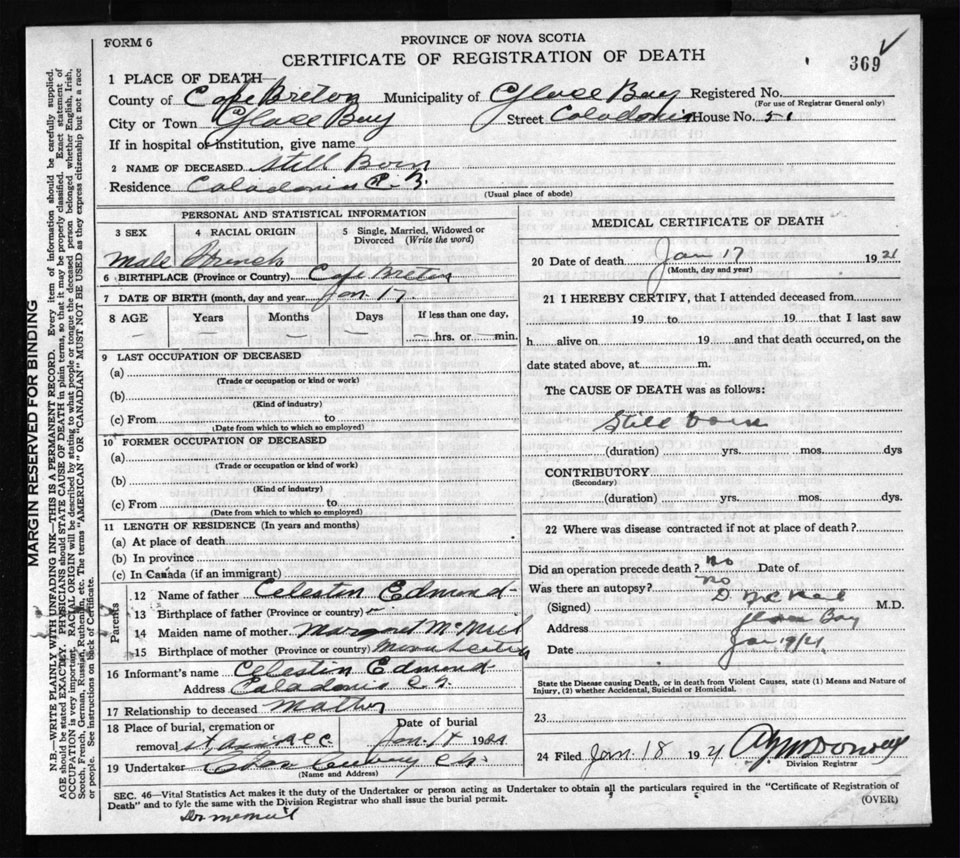 FORM 6
PROVINCE OF NOVA SCOTIA
CERTIFICATE OF REGISTRATION OF DEATH
369
1 PLACE OF DEATH
County of Cape Breton Municipality of Glace Bay Registered No.
(For use of Registrar General only)
City or Town Glace Bay Street Caladonia House No. 51
If in hospital or institution, give name
2 NAME OF DECEASED Still Born
Residence Caladonia
(Usual place of abode)
PERSONAL AND STATISTICAL INFORMATION
3 SEX
4 RACIAL ORIGIN
5 Single, Married, Widowed or Divorced (Write the word)
Male French
6 BIRTHPLACE (Province or Country) Cape Breton
7 DATE OF BIRTH (month, day and year) Jan 17
8 AGE
Years
Months
Days
If less than one day,
hrs. or min.
9 LAST OCCUPATION OF DECEASED
(a)
(Trade or occupation or kind or work)
(b)
(Kind of industry)
(c) From to
(Date from which to which so employed)
10 FORMER OCCUPATION OF DECEASED
(a)
(Trade or occupation or kind of work)
(b)
(Kind of industry)
(c) From to
(Date from which to which so employed)
11 LENGTH OF RESIDENCE (In years and months)
(a) At place of death
(b) In province
(c) In Canada (if an immigrant)
Parents
12 Name of father Celestin Edmond
13 Birthplace of father (Province or country) "
14 Maiden name of mother Margaret
15 Birthplace of mother (Province or country)
16 Informant's name Celestin Edmond
Address Caladonia
17 Relationship to deceased
18 Place of burial, cremation or
removal
Date of burial
Jan 18 19
19 Undertaker
(Name and Address)
MEDICAL CERTIFICATE OF DEATH
20 Date of death Jan 17 1921
(Month, day and year)
21 I HEREBY CERTIFY, that I attended deceased from
19 to 19 that I last saw
h alive on 19 and that death occurred, on the
date stated above, at m.
The CAUSE OF DEATH was as follows:
Still born
(duration) yrs. mos. dys
CONTRIBUTORY
(Secondary)
(duration) yrs. mos. dys.
22 Where was disease contracted if not at place of death?
Did an operation precede death? no Date of
Was there an autopsy? no
(Signed) M.D.
Address Glace Bay
Date Jan 19/21
State the Disease causing Death, or in death from Violent Causes, state (1) Means and Nature of
Injury, (2) whether Accidental, Suicidal or Homicidal.
23
24 Filed Jan 18 1921
Division Registrar
SEC. 46—Vital Statistics Act makes it the duty of the Undertaker or person acting as Undertaker to obtain all the particulars required in the "Certificate of Registration of
Death" and to fyle the same with the Division Registrar who shall issue the burial permit.
(OVER)
MARGIN RESERVED FOR BINDING
N.B.—WRITE PLAINLY WITH UNFADING INK—THIS IS A PERMANENT RECORD. Every item of information should be carefully supplied.
AGE should be stated EXACTLY. PHYSICIANS should STATE CAUSE OF DEATH in plain terms, so that it may be properly classified. Exact statement of
OCCUPATION is very important. RACIAL ORIGIN will be described by stating to what people or tongue the deceased person belonged whether English, Irish,
Scotch, French, German, Russian, Ruthenian, etc. The terms "AMERICAN" OR "CANADIAN" MUST NOT BE USED as they express citizenship but not a race
or people. See instructions on back of Certificate.